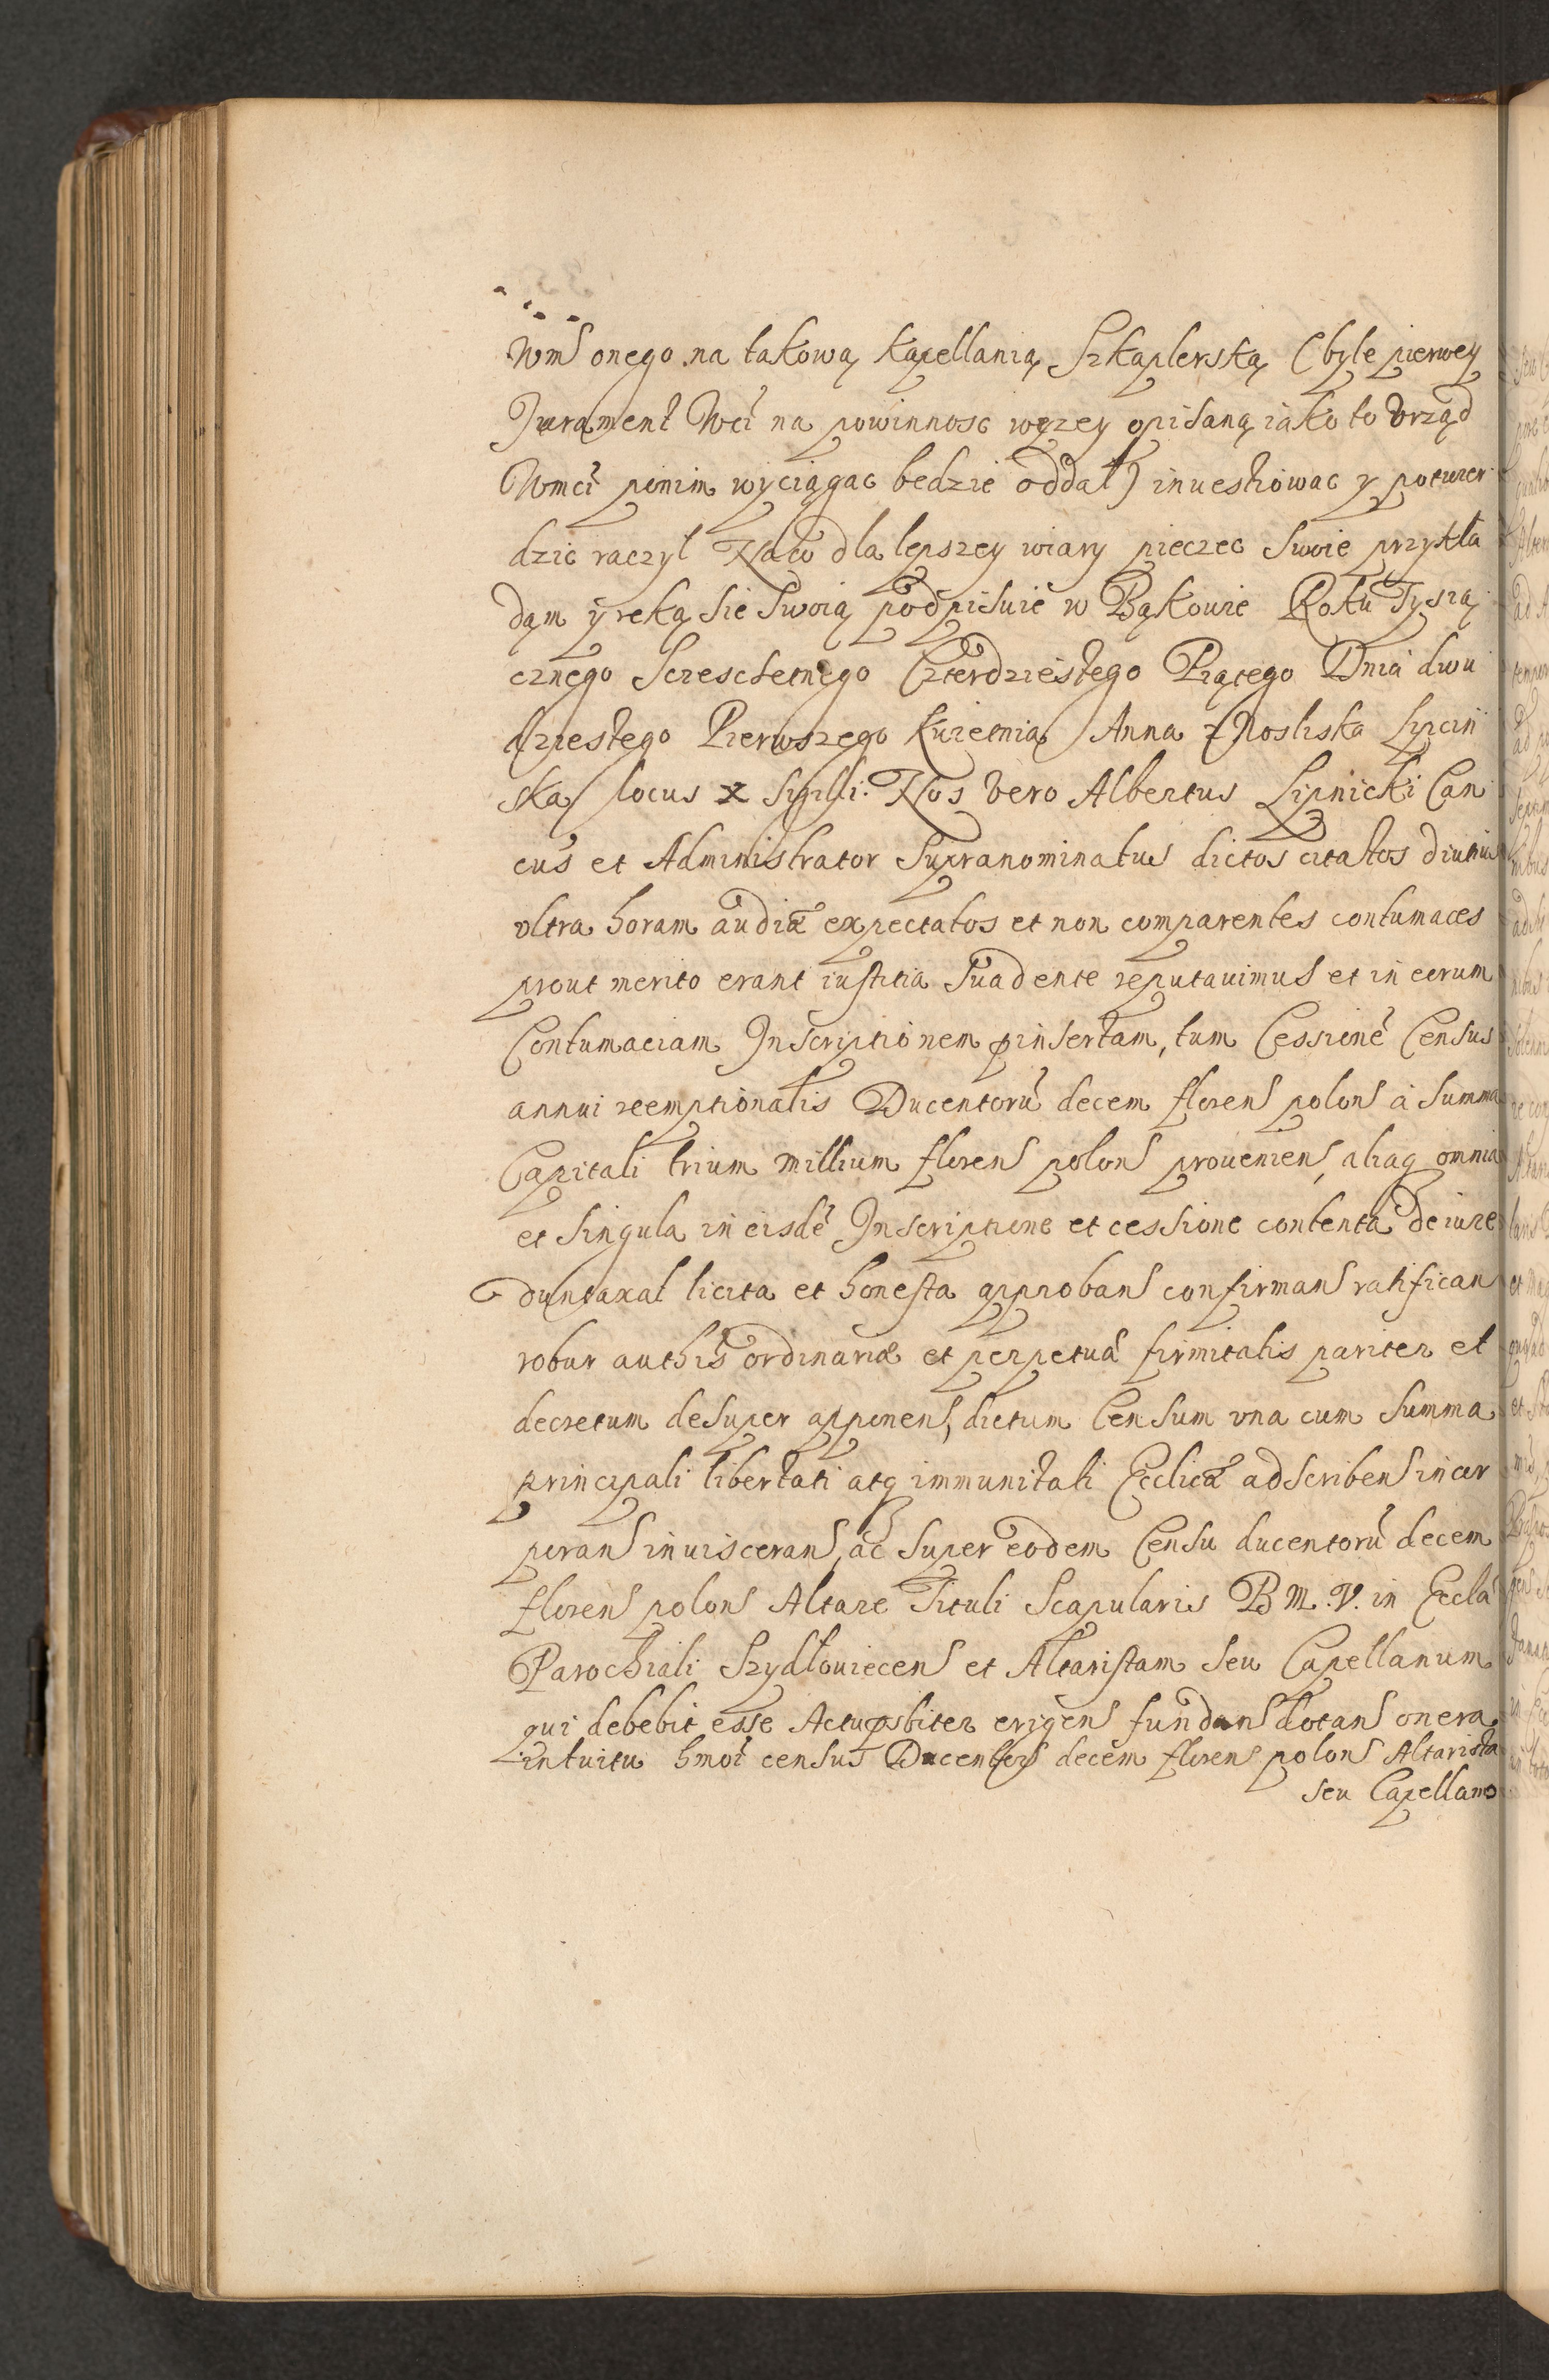 Wmś onego na takową Kapellanią Szkaplerską (byle pierwey
Jurament Wci na powinnosc wyzey opisaną iako to Vrząd
Wmci ponim wyciągac bedzie oddał) inuestiowac y potwier
dzic raczył Naco dla lepszey wiary pieczec Swoie przykła
dam y reką Sie Swoią podpisuie w Bąkowie Roku Tysią
cznego Szescsetnego Czterdziestego Piątego Dnia dwu
dziestego Pierwszego Kwietnia Anna z Lipcin
ska locus x Sigilli. Nos vero Albertus Lipnicki Can
cus et Administrator Supranominatus dictos citatos diutius
vltra horam audiæ expectatos et non comparentes contumaces
prout merito erant iustitia Suadente reputauimus et in eorum
Contumaciam Inscriptionem pinsertam, tum Cessionē Census
annui reemptionalis Ducentorū decem florens polons à Summa
Capitali trium millium florens polons proueniens, aliaq omnia
et Singula in eisdē Inscriptione et cessione contenta de iure
duntaxat licita et honesta approbans confirmans ratifican
robur authis ordinariæ et perpetuæ firmitatis pariter et
decretum desuper apponens, dictum Censum vna cum Summa
principali libertati atq immunitati Ecclicæ adscribens incor
porans inuiscerans, ac Super eodem Censu ducentorū decem
florens polons Altare Tituli Scapularis B M. V. in Eccla
Parochiali Szydlouiecens et Altaristam Seu Capellanum
qui debebit esse Actu psbiter erigens fundans dotans onera
intuitu hmoi census Ducentors decem florens polons Altarista
seu Capellano